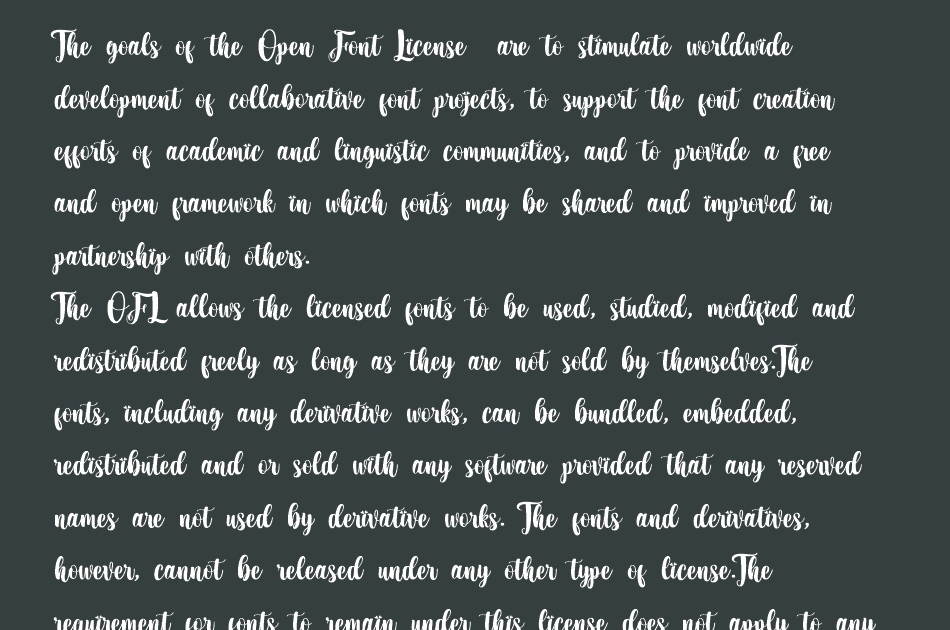 The goals of the Open Font License are to stimulate worldwide
development of collaborative font projects, to support the font creation
efforts of academic and linguistic communities, and to provide a free
and open framework in which fonts may be shared and improved in
partnership with others.
The OFL allows the licensed fonts to be used, studied, modified and
redistributed freely as long as they are not sold by themselves.The
fonts, including any derivative works, can be bundled, embedded,
redistributed and or sold with any software provided that any reserved
names are not used by derivative works. The fonts and derivatives,
however, cannot be released under any other type of license.The
requirement for fonts to remain under this license does not apply to any